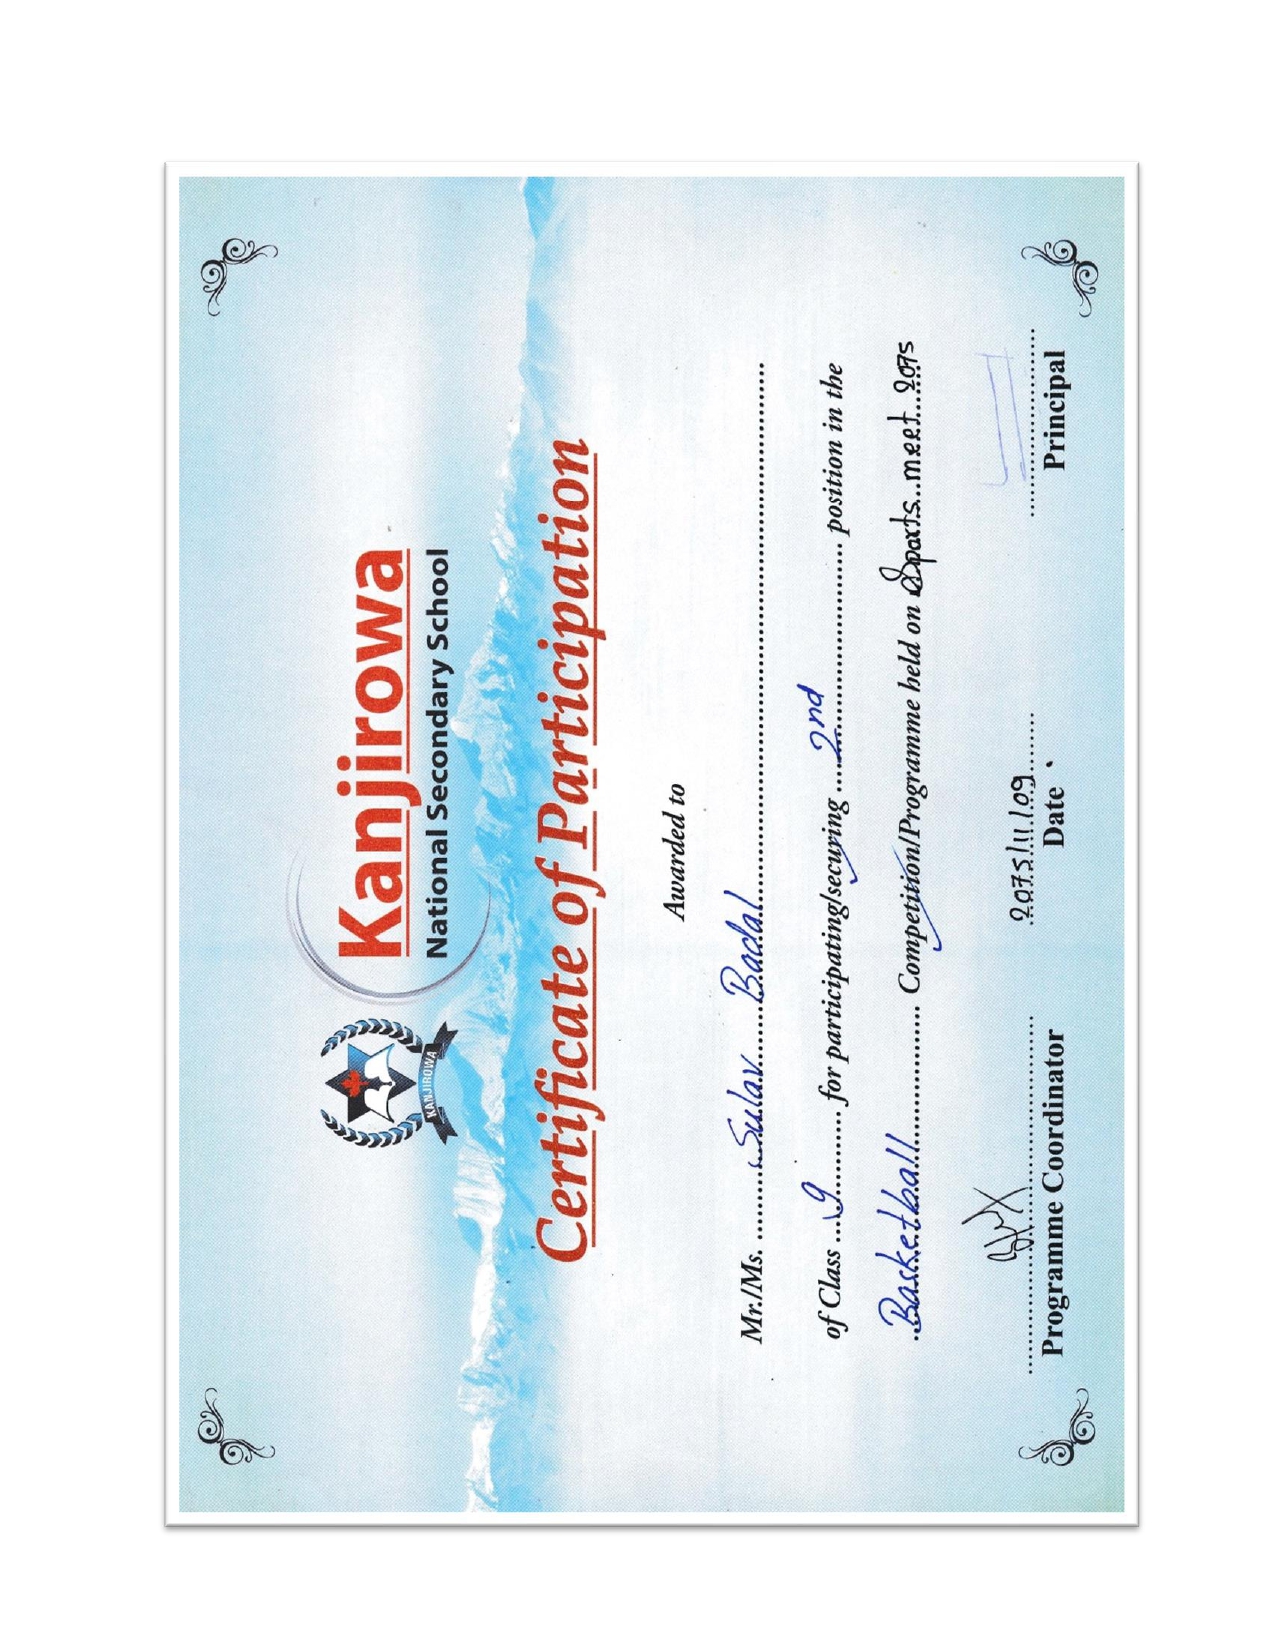 Kanjirowa
National Secondary School
KANJIROWA
Certificate of Participation
Awarded to
Mr./Ms. ..........Sulav.......Badal..........
of Class ...9.......... for participating/securing .....2nd.......... position in the
Basketball.......... Competition/Programme held on Sports..meet..2075
2075/11/09
Programme Coordinator Date Principal